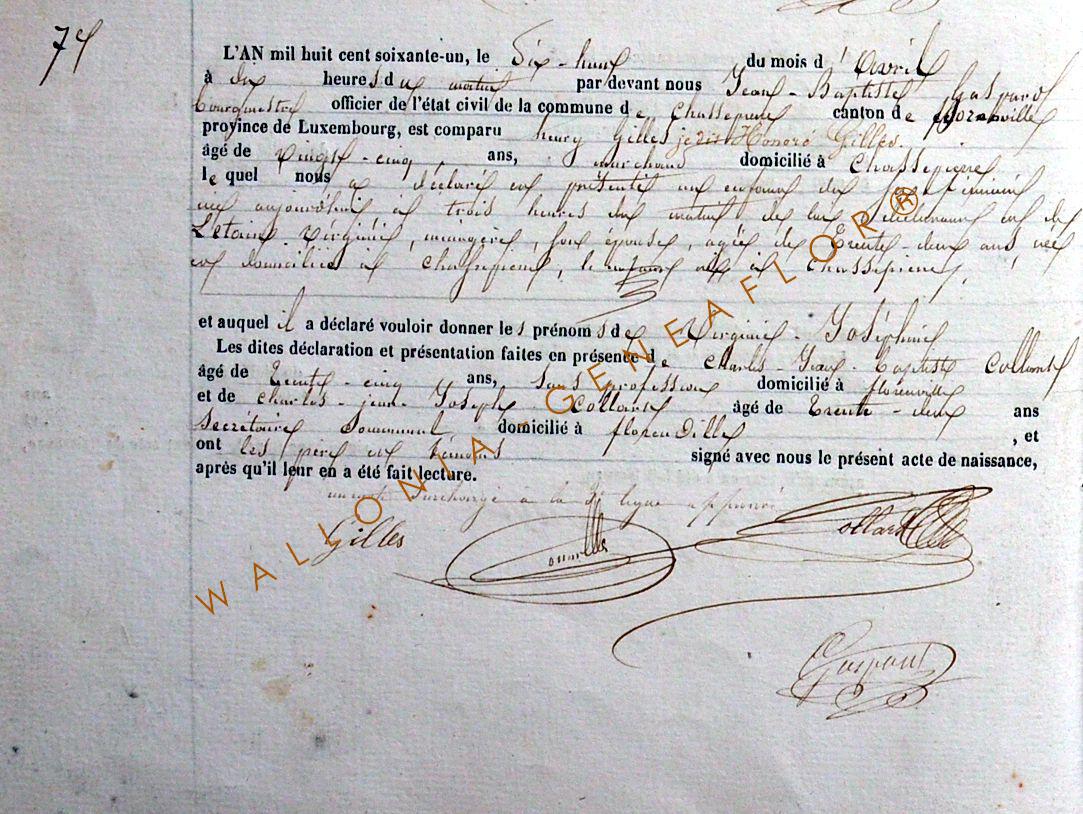 74
L'AN mil huit cent soixante-un, le Dix-huit du mois d'Avril
à dix heures du matin par devant nous Jean-Baptiste Gaspard
Bourguestre officier de l'état civil de la commune de Chassepierre canton de Florenville
province de Luxembourg, est comparu henry Gilles je dis Honoré Gilles.
âgé de Vingt-cinq, ans, marchand domicilié à Chassepierre
lequel nous a déclaré et présenté un enfant du sexe féminin
né aujourd'hui à trois heures du matin de lui déclarant et de
Letaine Virginie, ménagère, son épouse, agée de Trente-deux ans, née
et domiciliée à Chassepierre, l'enfant née à Chassepierre,
et auquel il a déclaré vouloir donner les prénoms de Virginie-Joséphine
Les dites déclaration et présentation faites en présence de Charles-Jean-baptiste Collard
âgé de Trente-cinq ans, sans profession domicilié à florenville
et de Charles-jean Joseph Collard âgé de Trente-deux ans
secrétaire Communal domicilié à florenville, et
ont les père et témoins signé avec nous le présent acte de naissance,
après qu'il leur en a été fait lecture.
surchargé à la ligne approuvé
Gilles
Collard
Gaspard
WALLONIA-GENEAFLOR®